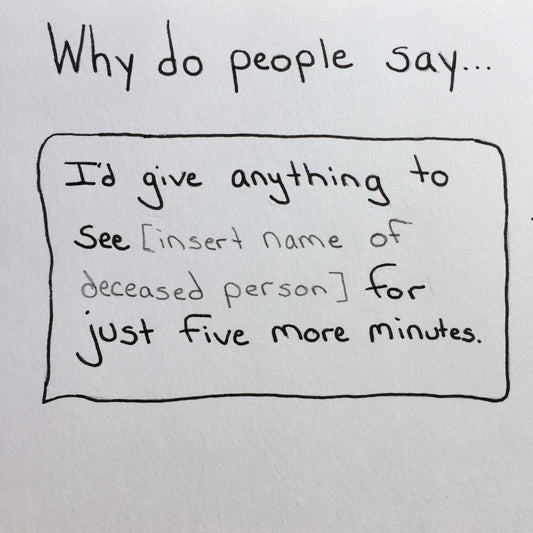 Why do people say...
I'd give anything to
see [insert name of
deceased person] for
just five more minutes.